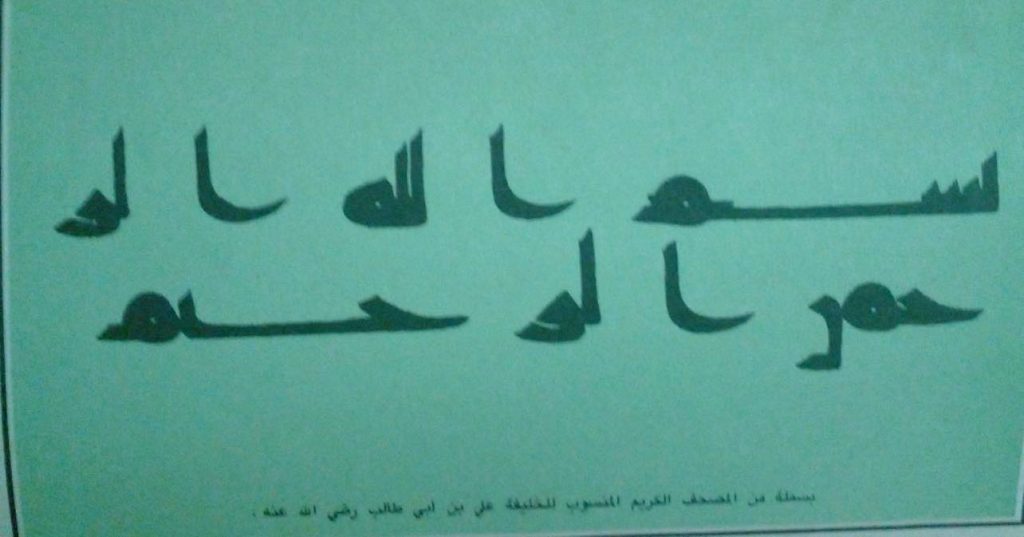 بسم الله الر
حمن الرحيم
بسملة من المصحف الكريم المنسوب للخليفة علي بن أبي طالب رضي الله عنه .